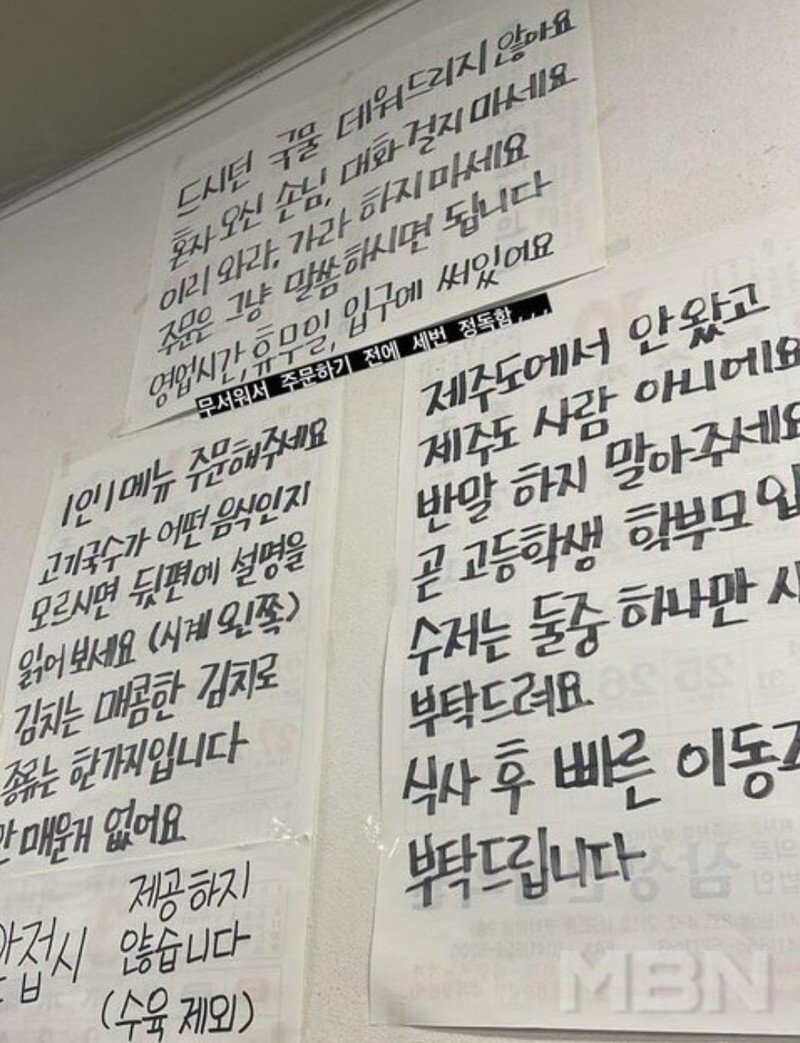 드시던 국물 데워드리지 않아요
혼자 오신 손님, 대화 걸지 마세요
이리 와라, 가라 하지 마세요
주문은 그냥 말씀하시면 됩니다
영업시간, 휴무일, 입구에 써있어요
무서워서 주문하기 전에 세번 정독함...
1인 1메뉴 주문해주세요
고기국수가 어떤 음식인지
모르시면 뒷편에 설명을
읽어 보세요 (시계 왼쪽)
김치는 매콤한 김치로
종류는 한가지입니다
안 매운게 없어요
앞접시 제공하지
않습니다
(수육 제외)
제주도에서 안 왔고
제주도 사람 아니에요
반말 하지 말아주세요
곧 고등학생 학부모
수저는 둘중 하나만
부탁드려요
식사 후 빠른 이동
부탁드립니다
MBN